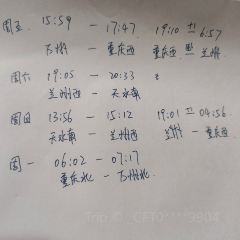 周五 15:59 — 17:47 19:10 +1 6:57
万州 — 重庆西 重庆西 — 兰州
周六 19:05 — 20:33
兰州西 — 天水南
周日 13:56 — 15:12 19:01 +1 04:56
天水南 — 兰州西 兰州 — 重庆西
周一 06:02 — 07:17
重庆北 — 万州北
Trip.© CFT0****9904